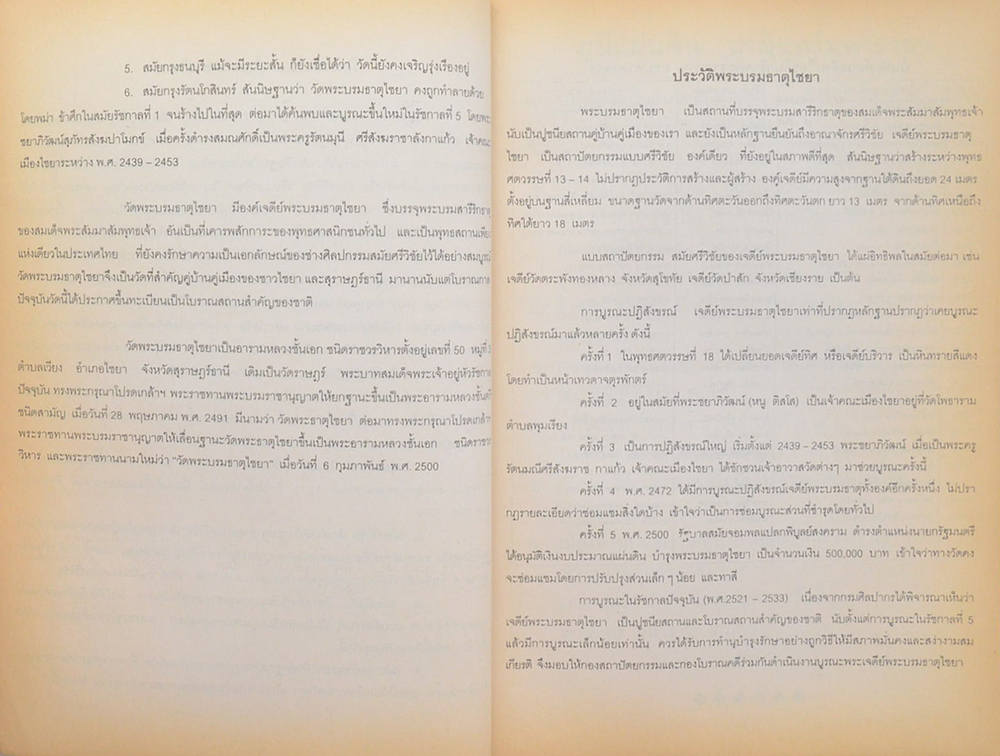 5. สมัยกรุงธนบุรี แม้จะมีระยะสั้น ก็ยังเชื่อได้ว่า วัดนี้ยังคงเจริญรุ่งเรืองอยู่
6. สมัยกรุงรัตนโกสินทร์ สันนิษฐานว่า วัดพระบรมธาตุไชยา คงถูกทำลายด้วย
โดยพม่า ข้าศึกในสมัยรัชกาลที่ 1 จนร้างไปในที่สุด ต่อมาได้ค้นพบและบูรณะขึ้นใหม่ในรัชกาลที่ 5 โดยพระ
ชยาภิวัฒน์สุภัทรสังฆปาโมกข์ เมื่อครั้งดำรงสมณศักดิ์เป็นพระครูรัตนมุนี ศรีสังฆราชาลังกาแก้ว เจ้าคณะ
เมืองไชยาระหว่าง พ.ศ. 2439 – 2453
วัดพระบรมธาตุไชยา มีองค์เจดีย์พระบรมธาตุไชยา ซึ่งบรรจุพระบรมสารีริกธาตุ
ของสมเด็จพระสัมมาสัมพุทธเจ้า อันเป็นที่เคารพสักการะของพุทธศาสนิกชนทั่วไป และเป็นพุทธสถานเพียง
แห่งเดียวในประเทศไทย ที่ยังคงรักษาความเป็นเอกลักษณ์ของช่างศิลปกรรมสมัยศรีวิชัยไว้ได้อย่างสมบูรณ์
วัดพระบรมธาตุไชยาจึงเป็นวัดที่สำคัญคู่บ้านคู่เมืองของชาวไชยา และสุราษฎร์ธานี มานานนับแต่โบราณกาล
ปัจจุบันวัดนี้ได้ประกาศขึ้นทะเบียนเป็นโบราณสถานสำคัญของชาติ
วัดพระบรมธาตุไชยาเป็นอารามหลวงชั้นเอก ชนิดราชวรวิหารตั้งอยู่เลขที่ 50 หมู่ที่
ตำบลเวียง อำเภอไชยา จังหวัดสุราษฎร์ธานี เดิมเป็นวัดราษฎร์ พระบาทสมเด็จพระเจ้าอยู่หัวรัชกาล
ปัจจุบัน ทรงพระกรุณาโปรดเกล้าฯ พระราชทานพระบรมราชานุญาตให้ยกฐานะขึ้นเป็นพระอารามหลวงชั้นตรี
ชนิดสามัญ เมื่อวันที่ 28 พฤษภาคม พ.ศ. 2491 มีนามว่า วัดพระธาตุไชยา ต่อมาทรงพระกรุณาโปรดเกล้าฯ
พระราชทานพระบรมราชานุญาตให้เลื่อนฐานะวัดพระธาตุไชยาขึ้นเป็นพระอารามหลวงชั้นเอก ชนิดราชวร
วิหาร และพระราชทานนามใหม่ว่า “วัดพระบรมธาตุไชยา” เมื่อวันที่ 6 กุมภาพันธ์ พ.ศ. 2500
ประวัติพระบรมธาตุไชยา
พระบรมธาตุไชยา เป็นสถานที่บรรจุพระบรมสารีริกธาตุของสมเด็จพระสัมมาสัมพุทธเจ้า
นับเป็นปูชนียสถานคู่บ้านคู่เมืองของเรา และยังเป็นหลักฐานยืนยันถึงอาณาจักรศรีวิชัย เจดีย์พระบรมธาตุ
ไชยา เป็นสถาปัตยกรรมแบบศรีวิชัย องค์เดียว ที่ยังอยู่ในสภาพดีที่สุด สันนิษฐานว่าสร้างระหว่างพุทธ
ศตวรรษที่ 13 – 14 ไม่ปรากฏประวัติการสร้างและผู้สร้าง องค์เจดีย์มีความสูงจากฐานใต้ดินถึงยอด 24 เมตร
ตั้งอยู่บนฐานสี่เหลี่ยม ขนาดฐานวัดจากด้านทิศตะวันออกถึงทิศตะวันตก ยาว 13 เมตร จากด้านทิศเหนือถึง
ทิศใต้ยาว 18 เมตร
แบบสถาปัตยกรรม สมัยศรีวิชัยของเจดีย์พระบรมธาตุไชยา ได้แผ่อิทธิพลในสมัยต่อมา เช่น
เจดีย์วัดตระพังทองหลาง จังหวัดสุโขทัย เจดีย์วัดป่าสัก จังหวัดเชียงราย เป็นต้น
การบูรณะปฏิสังขรณ์ เจดีย์พระบรมธาตุไชยาเท่าที่ปรากฏหลักฐานปรากฏว่าเคยบูรณะ
ปฏิสังขรณ์มาแล้วหลายครั้ง ดังนี้
ครั้งที่ 1 ในพุทธศตวรรษที่ 18 ได้เปลี่ยนยอดเจดีย์ทิศ หรือเจดีย์บริวาร เป็นหินทรายสีแดง
โดยทำเป็นหน้าเทวดาจตุรพักตร์
ครั้งที่ 2 อยู่ในสมัยที่พระชยาภิวัฒน์ (หนู ติสโส) เป็นเจ้าคณะเมืองไชยาอยู่ที่วัดโพธาราม
ตำบลพุมเรียง
ครั้งที่ 3 เป็นการปฏิสังขรณ์ใหญ่ เริ่มตั้งแต่ 2439 – 2453 พระชยาภิวัฒน์ เมื่อเป็นพระครู
รัตนมุนีศรีสังฆราช กาแก้ว เจ้าคณะเมืองไชยา ได้ชักชวนเจ้าอาวาสวัดต่างๆ มาช่วยบูรณะครั้งนี้
ครั้งที่ 4 พ.ศ. 2472 ได้มีการบูรณะปฏิสังขรณ์เจดีย์พระบรมธาตุทั้งองค์อีกครั้งหนึ่ง ไม่ปรา
กฏรายละเอียดว่าซ่อมแซมสิ่งใดบ้าง เข้าใจว่าเป็นการซ่อมบูรณะส่วนที่ชำรุดโดยทั่วไป
ครั้งที่ 5 พ.ศ. 2500 รัฐบาลสมัยจอมพลแปลกพิบูลย์สงคราม ดำรงตำแหน่งนายกรัฐมนตรี
ได้อนุมัติเงินงบประมาณแผ่นดิน บำรุงพระบรมธาตุไชยา เป็นจำนวนเงิน 500,000 บาท เข้าใจว่าทางวัดคง
จะซ่อมแซมโดยการปรับปรุงส่วนเล็ก ๆ น้อย และทาสี
การบูรณะในรัชกาลปัจจุบัน (พ.ศ.2521 – 2533) เนื่องจากกรมศิลปากรได้พิจารณาเห็นว่า
เจดีย์พระบรมธาตุไชยา เป็นปูชนียสถานและโบราณสถานสำคัญของชาติ นับตั้งแต่การบูรณะในรัชกาลที่ 5
แล้วมีการบูรณะเล็กน้อยเท่านั้น ควรได้รับการทำนุบำรุงรักษาอย่างถูกวิธีให้มีสภาพมั่นคงและสง่างามสม
เกียรติ จึงมอบให้กองสถาปัตยกรรมและกองโบราณคดีร่วมกันดำเนินงานบูรณะพระเจดีย์พระบรมธาตุไชยา